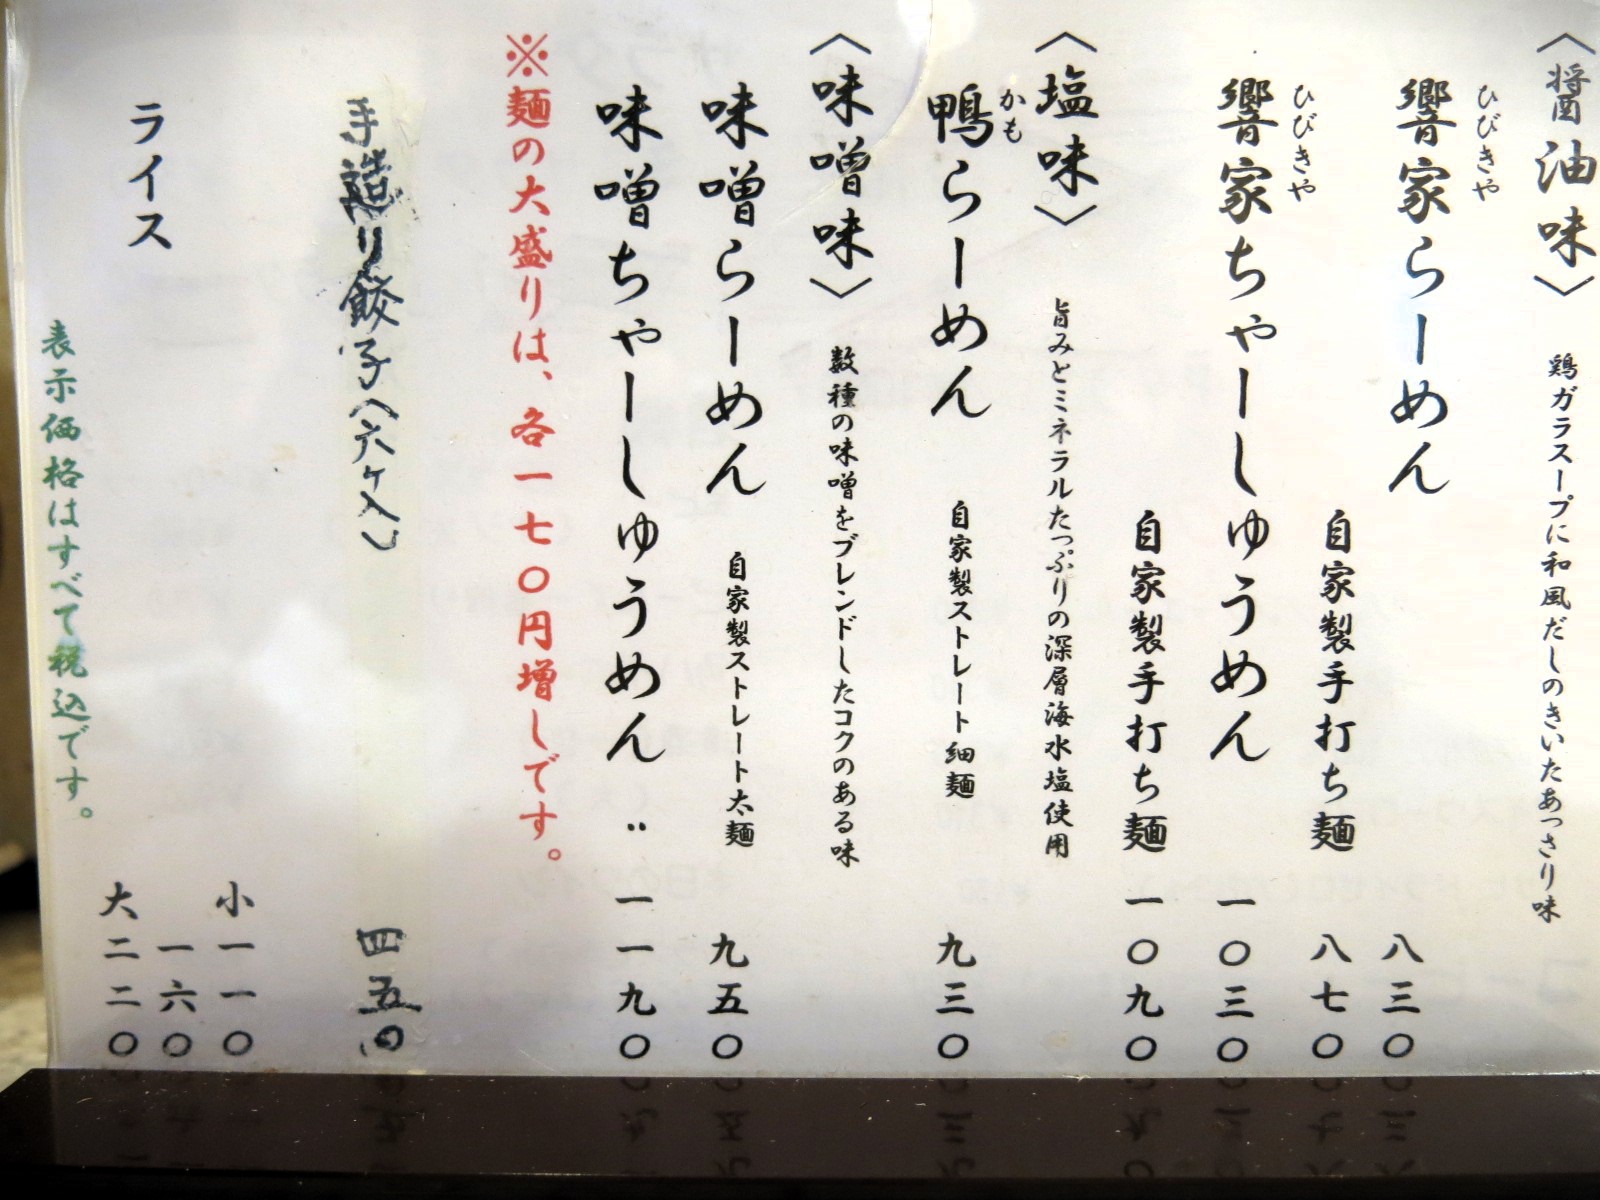 〈醤油味〉 鶏ガラスープに和風だしのきいたあっさり味
ひびきや
響家らーめん 八三〇
自家製手打ち麺 八七〇
ひびきや
響家ちゃーしゅうめん 一〇三〇
自家製手打ち麺 一〇九〇
〈塩味〉 旨みとミネラルたっぷりの深層海水塩使用
かも
鴨らーめん 自家製ストレート細麺 九三〇
〈味噌味〉 数種の味噌をブレンドしたコクのある味
味噌らーめん 自家製ストレート太麺 九五〇
味噌ちゃーしゅうめん 〃 一一九〇
※麺の大盛りは、各一七〇円増しです。
手造り餃子(六ヶ入) 四五〇
ライス 小一一〇
一六〇
大二二〇
表示価格はすべて税込です。